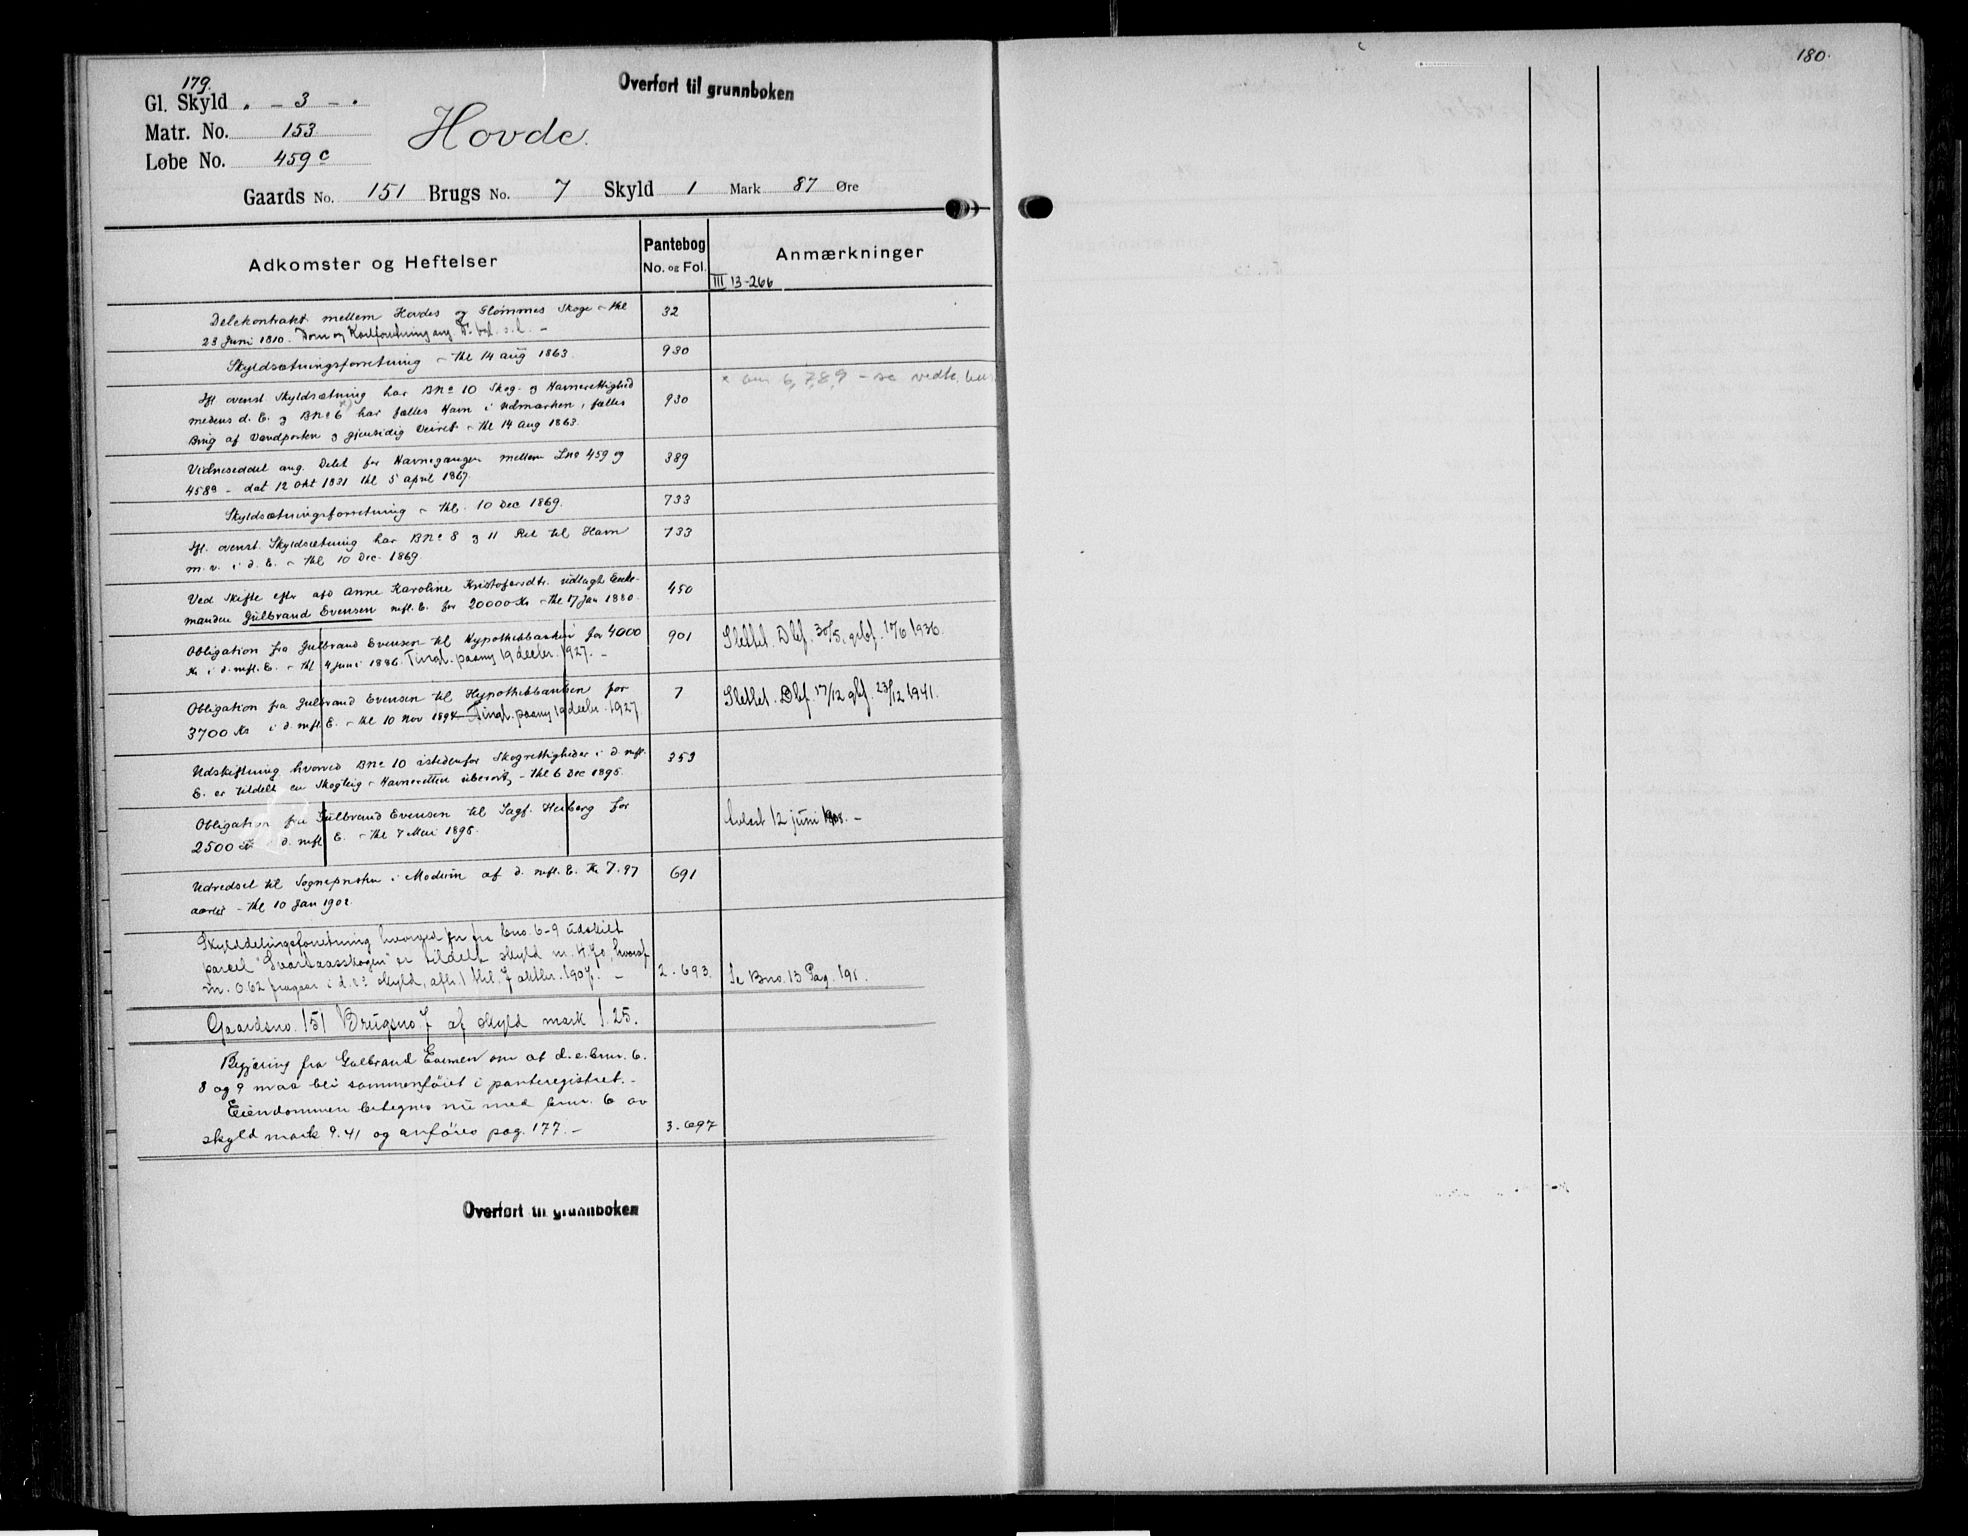 179.
Overført til grunnboken
Gl. Skyld . - 3 - .
Matr. No. 153
Hovde.
Løbe No. 459 c
Gaards No. 151 Brugs No. 7 Skyld 1 Mark 87 Øre
Adkomster og Heftelser
Pantebog
No. og Fol.
Anmærkninger
III 13-266
Delekontrakt mellem Hovdes og Glommes Skoge - thl 32
23 Juni 1810. Dom og
Skyldsætningsforretning - thl 14 aug 1863. 930
6, 7, 8, 9 - se
Ifl ovenst Skyldsætning har BNo 10 Skog- og Havnerettighed
medens d. E. og BNo 6 x) har fælles Havn i Udmarken, fælles 930
Brug af Vandposten og gjensidig Veiret - thl 14 aug 1863.
Vidneseddel ang. Delet for Havnegangen mellem Lno 459 og 389
458a - dat 12 Okt 1831 thl 5 april 1867.
Skyldsætningsforretning - thl. 10 Dec 1869. 733
Ifl. ovenst. Skyldsætning har BNo 8 og 11 Ret til Havn 733
m. v. i d. E. - thl 10 Dec. 1869
Ved Skifte efter afd Anne Karoline Kristofersdtr. udlagt Enke- 450
manden Gulbrand Evensen mfl. E. for 20000 Kr - thl 17 Jan 1880.
Obligation fra Gulbrand Evensen til Hypothekbanken for 4000 901 Slettet. Dbf. 30/5, gebf. 17/6 1936.
Kr i d. mfl. E. - thl 4 Juni 1886. Tingl. paany 19 decbr. 1927. -
Obligation fra Gulbrand Evensen til Hypothekbanken for 7 Slettet. Dbf. 17/12 gbf. 23/12 1941.
3700 Kr i d. mfl. E. - thl 10 Nov 1894 Tingl. paany 19 decbr. 1927
Udskiftning hvorved BNo 10 istedenfor Skogrettigheder i d. mfl. 353
E. er tildelt en Skogteig - Havneretten uberørt, - thl 6 Dec 1895.
Obligation fra Gulbrand Evensen til Sagf. Heiberg for
2500 Kr i d. mfl E. - thl 7 Mai 1896. Avlæst 12 juni 1908. -
Udredsel til Sognepresten i Modum af d. mfl. E. Kr 7.97 691
aarlig - thl 10 Jan 1902.
Skylddelingsforretning hvorved en fra bno. 6-9 udskilt
parcel "Svartaasskogen" er tildelt skyld m. 4.70, hvoraf
m. 0.62 fragaar i d. e's skyld, afh.) thl. 7 oktbr. 1907. - 2.693. Se Bno. 13 Pag. 191.
Gaardsno. 151 Brugsno. 7 af skyld mark 1.25.
Begjæring fra Gulbrand Evensen om at d. e. bnr. 6.
8 og 9 maa bli sammenføiet i panteregistret. -
Eiendommen betegnes nu med bnr. 6 av
skyld mark 9.41 og anføres pag. 177. - 3.697
Overført til grunnboken
180.